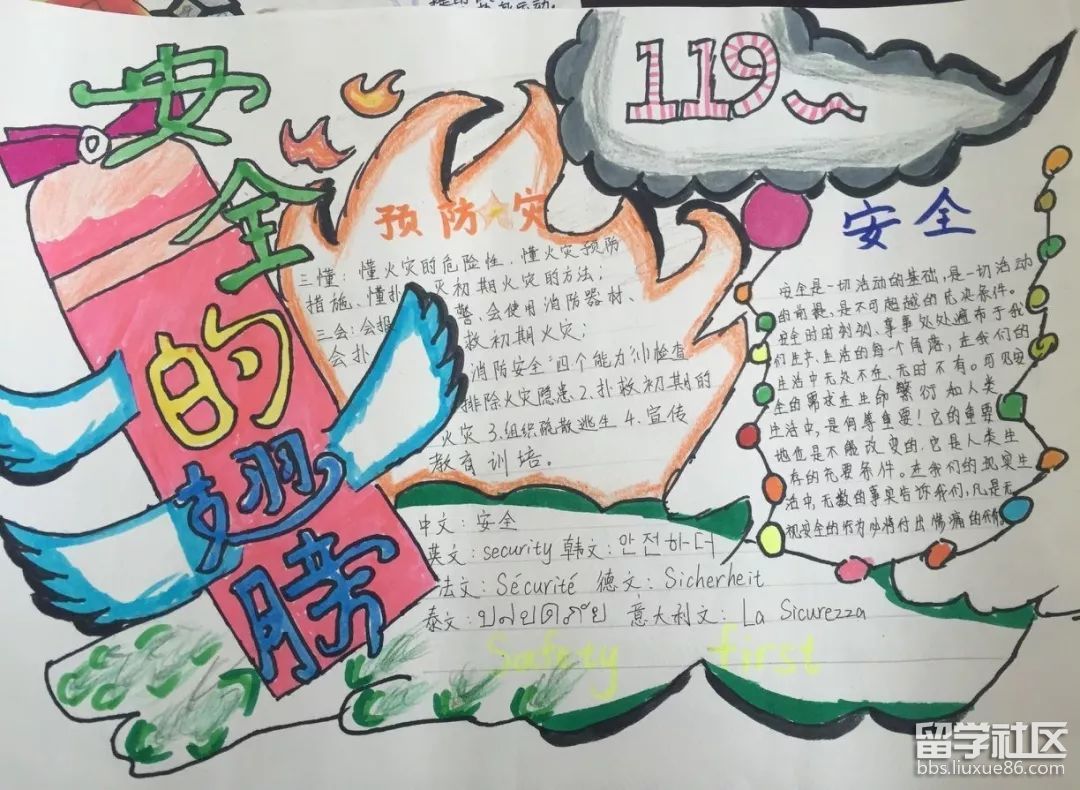 安全的翅膀
119~
预防火灾
三懂：懂火灾的危险性、懂火灾预防
措施、懂扑 灭初期火灾的方法；
三会：会报 警、会使用消防器材、
会扑 救初期火灾；
消防安全“四个能力”：1.检查
排除火灾隐患 2.扑救初期的
火灾 3.组织疏散逃生 4.宣传
教育训培。
安全
安全是一切活动的基础，是一切活动
的前提，是不可超越的先决条件。
安全时时刻刻、事事处处遍布于我
们生产、生活的每一个角落，在我们的
生活中无处不在、无时不有。可见安
全的需求在生命繁衍和人类
生活中，是何等重要！它的重要
地位是不能改变的，它是人类生
存的充要条件。在我们的现实生
活中，无数的事实告诉我们，凡是无
视安全的行为必将付出惨痛的代价。
中文：安全
英文：security 韩文：안전하다
法文：Sécurité 德文：Sicherheit
泰文： 意大利文：La Sicurezza
Safety first
留学社区
bbs.liuxue86.com